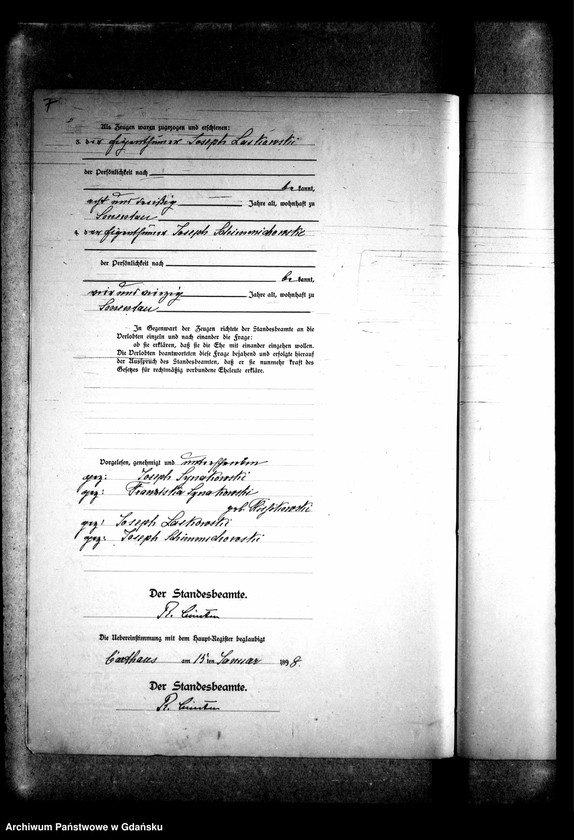 7
Als Zeugen waren zugezogen und erschienen:
3. der Eigenthümer Joseph Laskowski
der Persönlichkeit nach
be kannt,
acht und dreißig Jahre alt, wohnhaft zu
4. der Eigenthümer Joseph Schimmichowski
der Persönlichkeit nach
be kannt,
vier und vierzig Jahre alt, wohnhaft zu
In Gegenwart der Zeugen richtete der Standesbeamte an die
Verlobten einzeln und nach einander die Frage:
ob sie erklären, daß sie die Ehe mit einander eingehen wollen.
Die Verlobten beantworteten diese Frage bejahend und erfolgte hierauf
der Ausspruch des Standesbeamten, daß er sie nunmehr kraft des
Gesetzes für rechtmäßig verbundene Eheleute erkläre.
Vorgelesen, genehmigt und unterschrieben
gez: Joseph Synakowski
gez: Franziska Synakowski
geb.
gez: Joseph Laskowski
gez: Joseph Schimmichowski
Der Standesbeamte.
Die Uebereinstimmung mit dem Haupt-Register beglaubigt
Carthaus am 15 ten Januar 1898.
Der Standesbeamte.
Archiwum Państwowe w Gdańsku